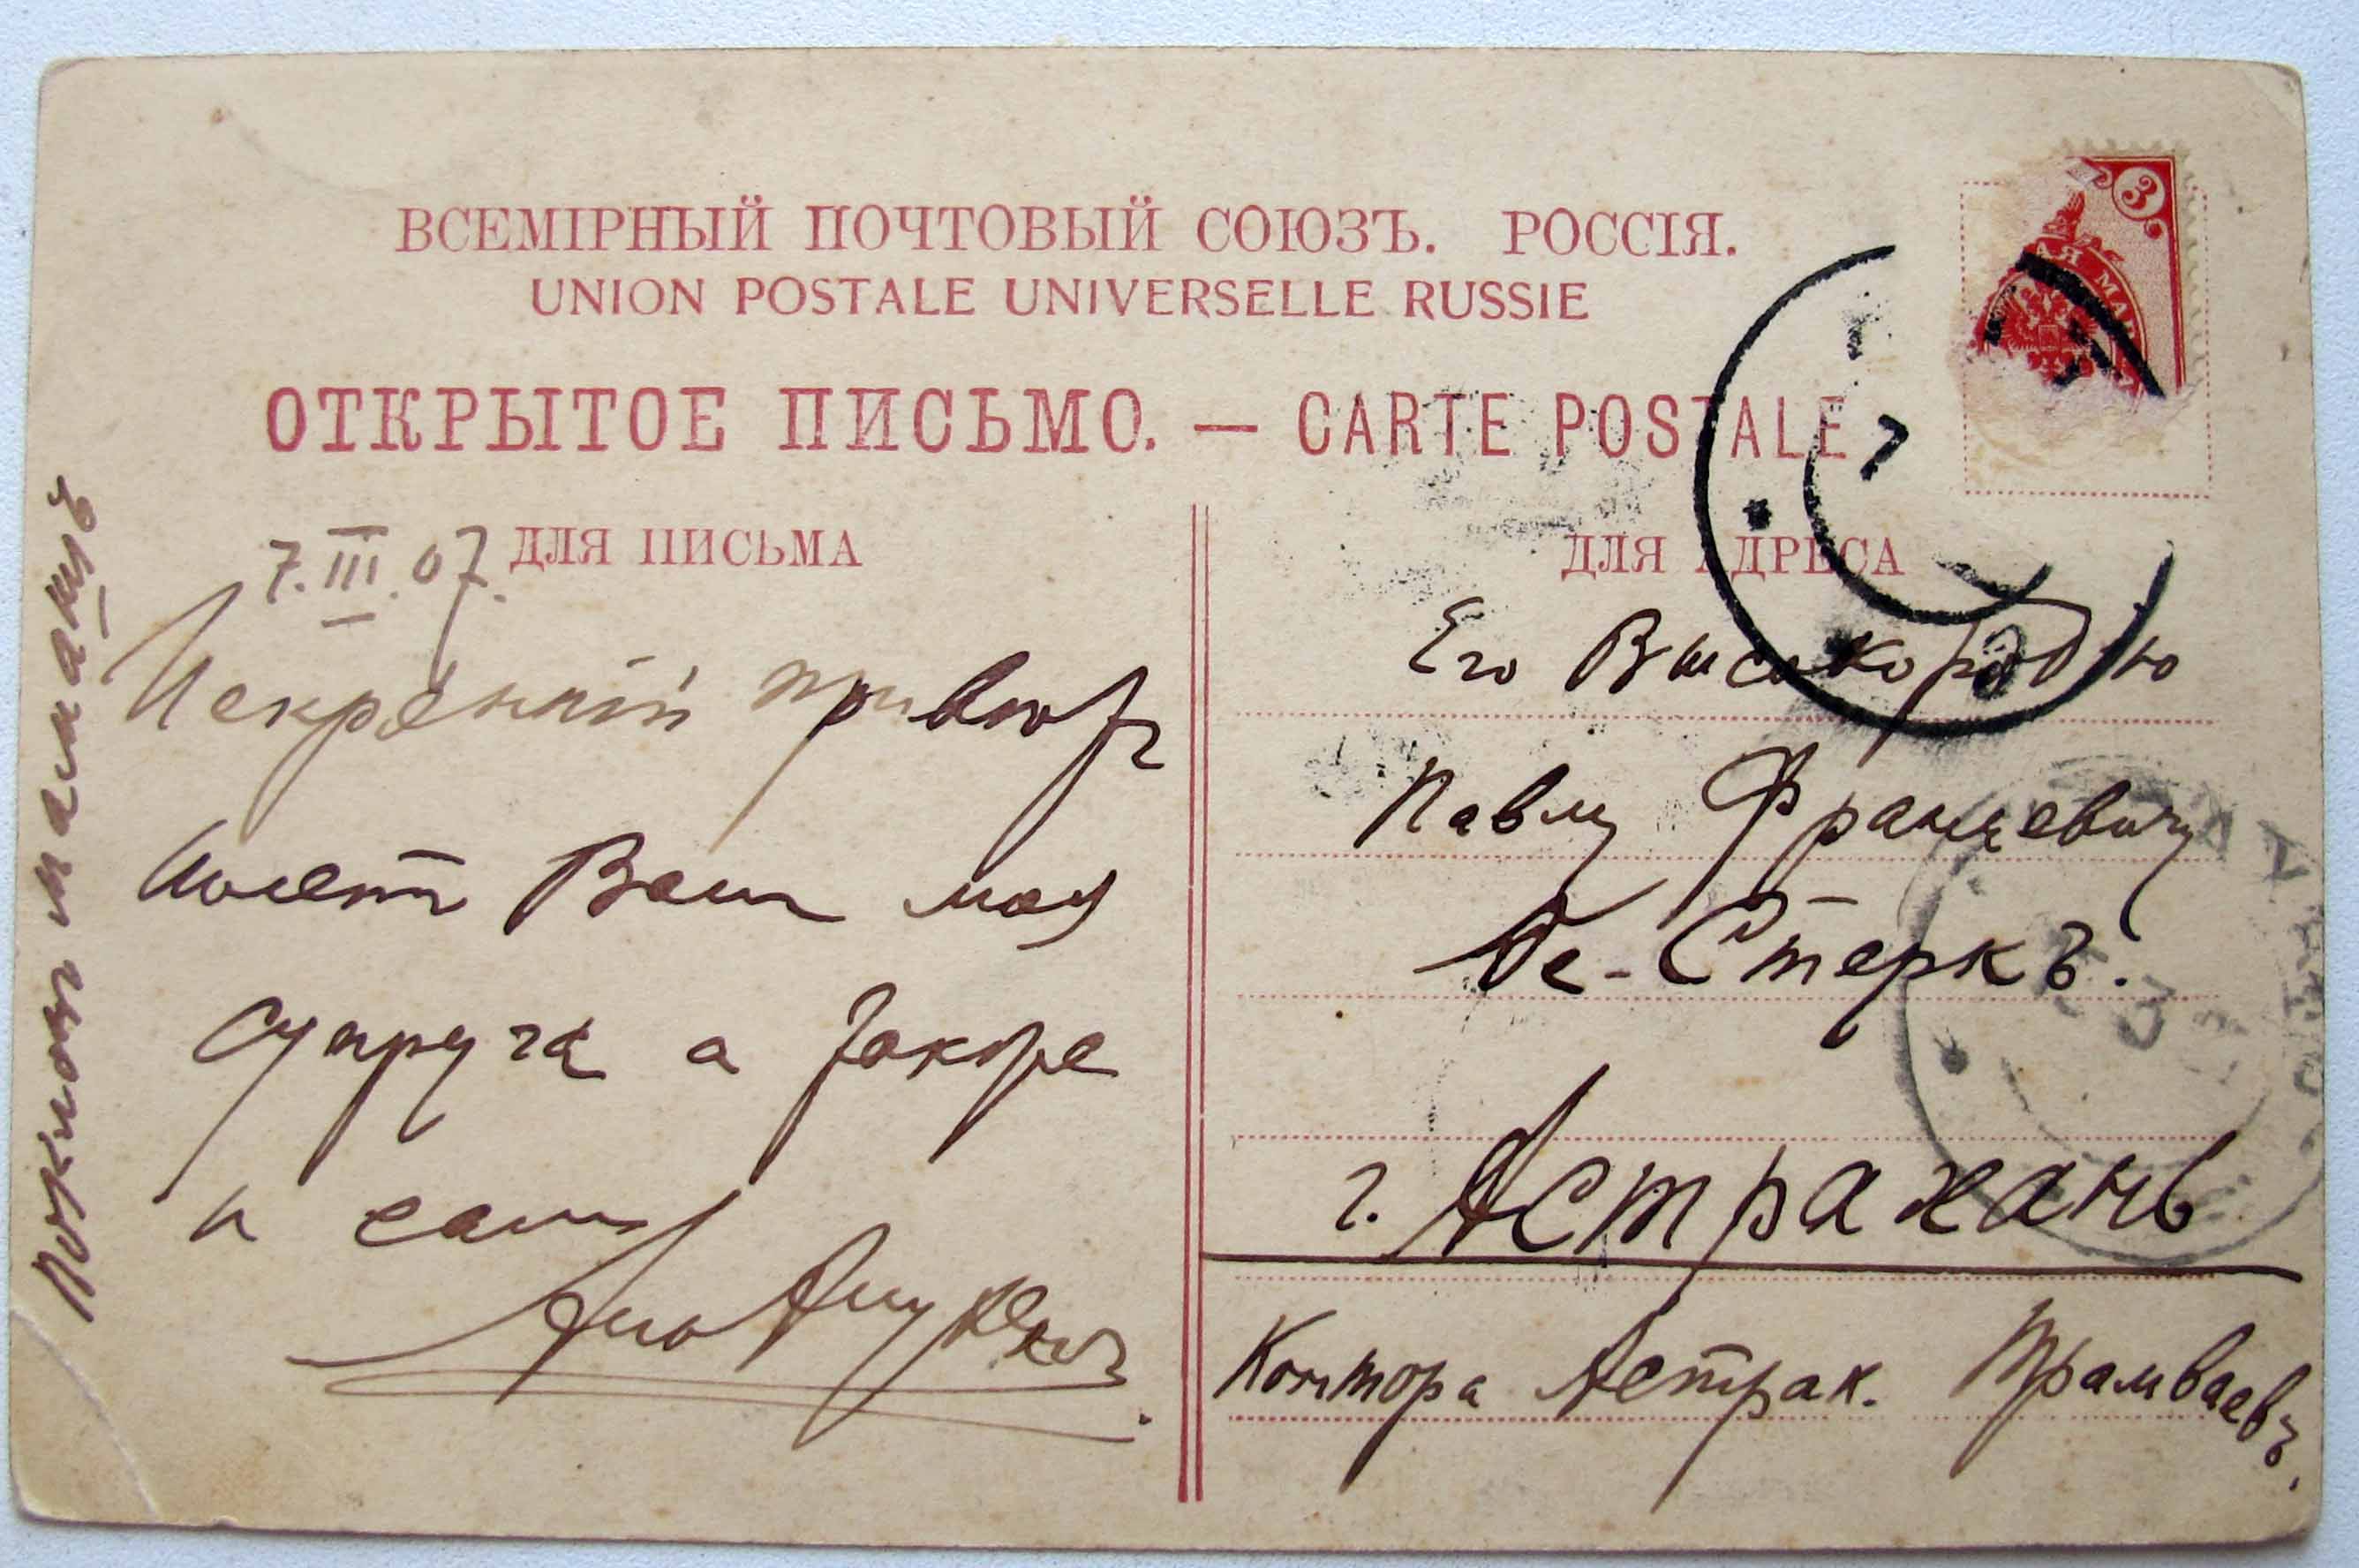 ВСЕМІРНЫЙ ПОЧТОВЫЙ СОЮЗЪ. РОССІЯ.
UNION POSTALE UNIVERSELLE RUSSIE
ОТКРЫТОЕ ПИСЬМО. — CARTE POSTALE
3
АЯ МАР
7
ДЛЯ ПИСЬМА
7.III.07.
Искренній привѣтъ
шлетъ Вамъ моя
супруга а также
и самъ
ДЛЯ АДРЕСА
Его Высокородію
Павлу Францевичу
Де-Стеркъ.
г. Астрахань
Контора Астрах. Трамваевъ.
Поклонъ